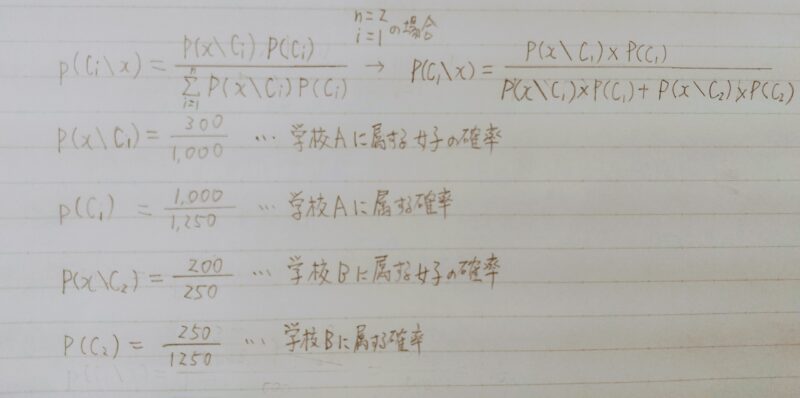 n=2
i=1 の場合
P(Ci\x) = P(x\Ci) P(Ci) / Σ(i=1→n) P(x\Ci) P(Ci) → P(C1\x) = P(x\C1)×P(C1) / P(x\C1)×P(C1) + P(x\C2)×P(C2)
P(x\C1) = 300/1,000 … 学校Aに属する女子の確率
P(C1) = 1,000/1,250 … 学校Aに属する確率
P(x\C2) = 200/250 … 学校Bに属する女子の確率
P(C2) = 250/1250 … 学校Bに属する確率